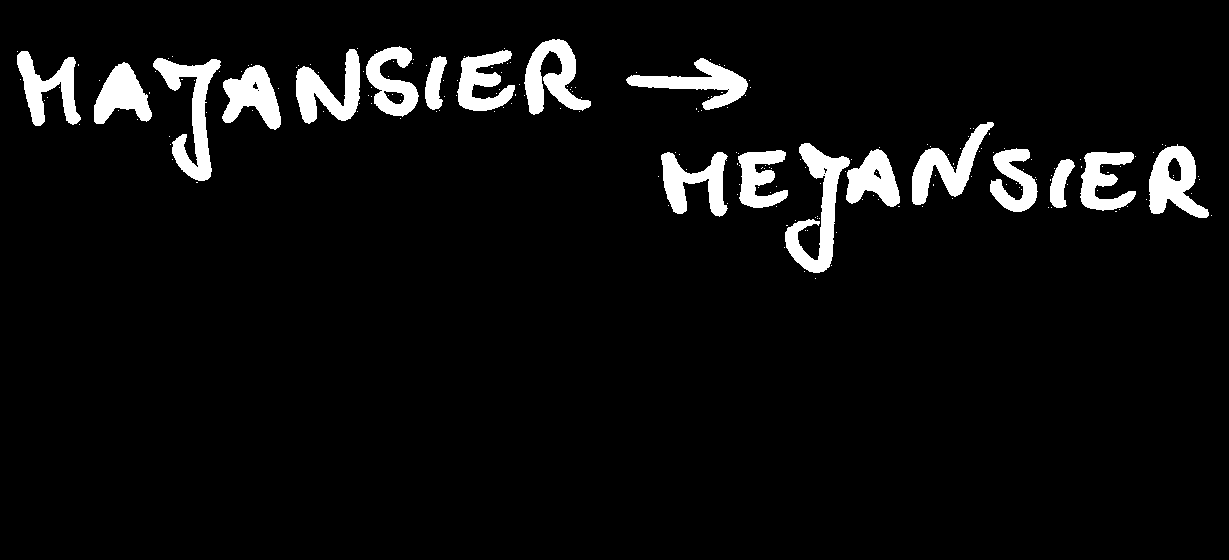 MAJANSIER →
MEJANSIER